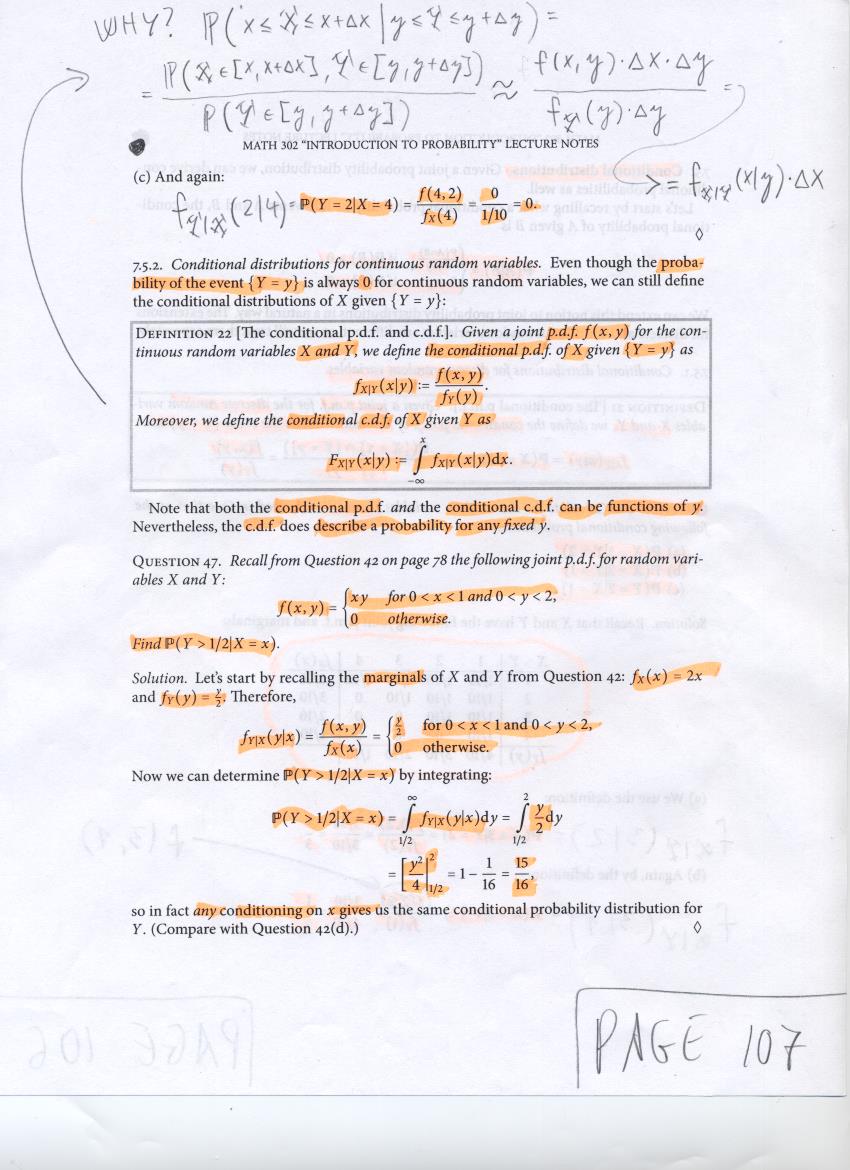 WHY? ℙ(x ≤ X ≤ x+Δx | y ≤ Y ≤ y+Δy) =
= ℙ(X ∈ [x, x+Δx], Y ∈ [y, y+Δy]) / ℙ(Y ∈ [y, y+Δy]) ≈ f(x,y)·Δx·Δy / f_Y(y)·Δy =
MATH 302 “INTRODUCTION TO PROBABILITY” LECTURE NOTES
> = f_X|Y(x|y)·Δx
(c) And again:
f_Y|X(2|4) = ℙ(Y = 2|X = 4) = f(4,2)/f_X(4) = 0/(1/10) = 0.
◊
7.5.2. Conditional distributions for continuous random variables. Even though the proba-
bility of the event {Y = y} is always 0 for continuous random variables, we can still define
the conditional distributions of X given {Y = y}:
DEFINITION 22 [The conditional p.d.f. and c.d.f.]. Given a joint p.d.f. f(x, y) for the con-
tinuous random variables X and Y, we define the conditional p.d.f. of X given {Y = y} as
f_X|Y(x|y) := f(x, y)/f_Y(y).
Moreover, we define the conditional c.d.f. of X given Y as
F_X|Y(x|y) := ∫_{-∞}^{x} f_X|Y(x|y)dx.
Note that both the conditional p.d.f. and the conditional c.d.f. can be functions of y.
Nevertheless, the c.d.f. does describe a probability for any fixed y.
QUESTION 47. Recall from Question 42 on page 78 the following joint p.d.f. for random vari-
ables X and Y:
f(x, y) = { xy for 0 < x < 1 and 0 < y < 2,
0 otherwise.
Find ℙ(Y > 1/2|X = x).
Solution. Let’s start by recalling the marginals of X and Y from Question 42: f_X(x) = 2x
and f_Y(y) = y/2. Therefore,
f_Y|X(y|x) = f(x, y)/f_X(x) = { y/2 for 0 < x < 1 and 0 < y < 2,
0 otherwise.
Now we can determine ℙ(Y > 1/2|X = x) by integrating:
ℙ(Y > 1/2|X = x) = ∫_{1/2}^{∞} f_Y|X(y|x)dy = ∫_{1/2}^{2} y/2 dy
= [y²/4|_{1/2}^{2} = 1 − 1/16 = 15/16,
so in fact any conditioning on x gives us the same conditional probability distribution for
Y. (Compare with Question 42(d).) ◊
PAGE 107